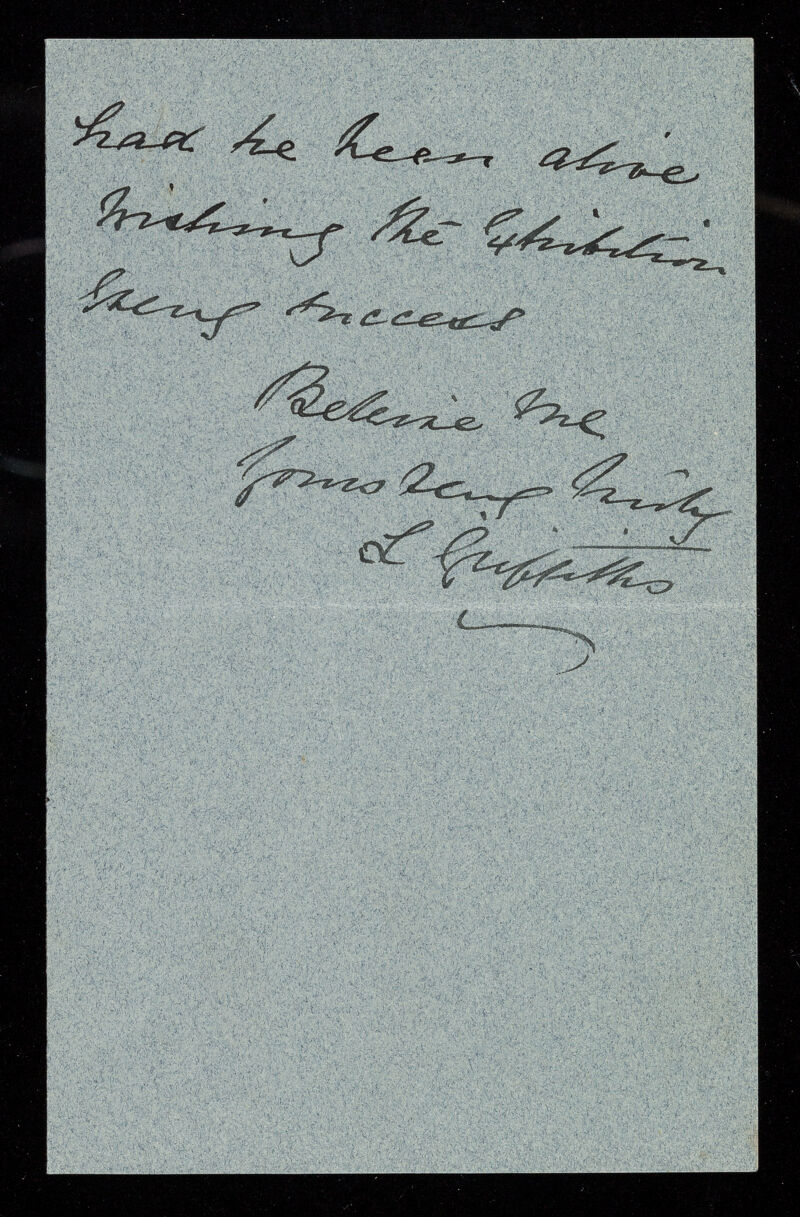 had he been alive
Wishing the Exhibition
Every success
Believe Me
Yours very truly
L Griffiths